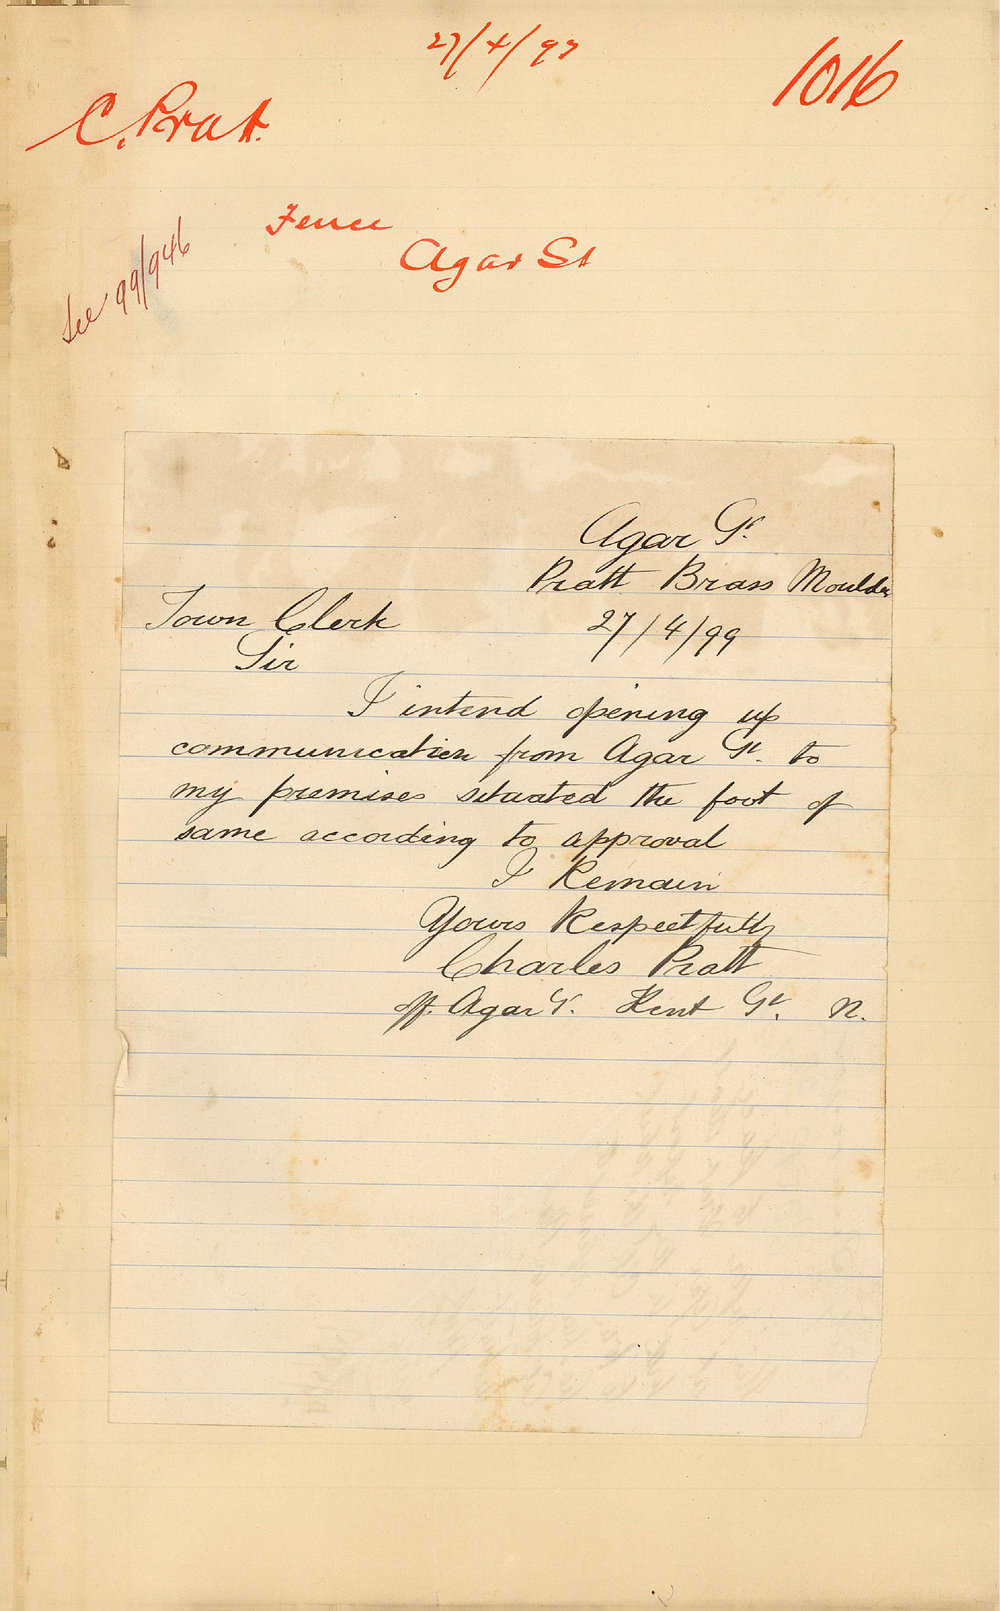 27/4/99
1016
C. Pratt
Fence
Agar St
See 99/946
Agar St.
Pratt Brass Moulder
Town Clerk
27/4/99
Sir
I intend opening up
communication from Agar St. to
my premises situated the foot of
same according to approval
I Remain
Yours Respectfully
Charles Pratt
off. Agar St. Kent St. N.